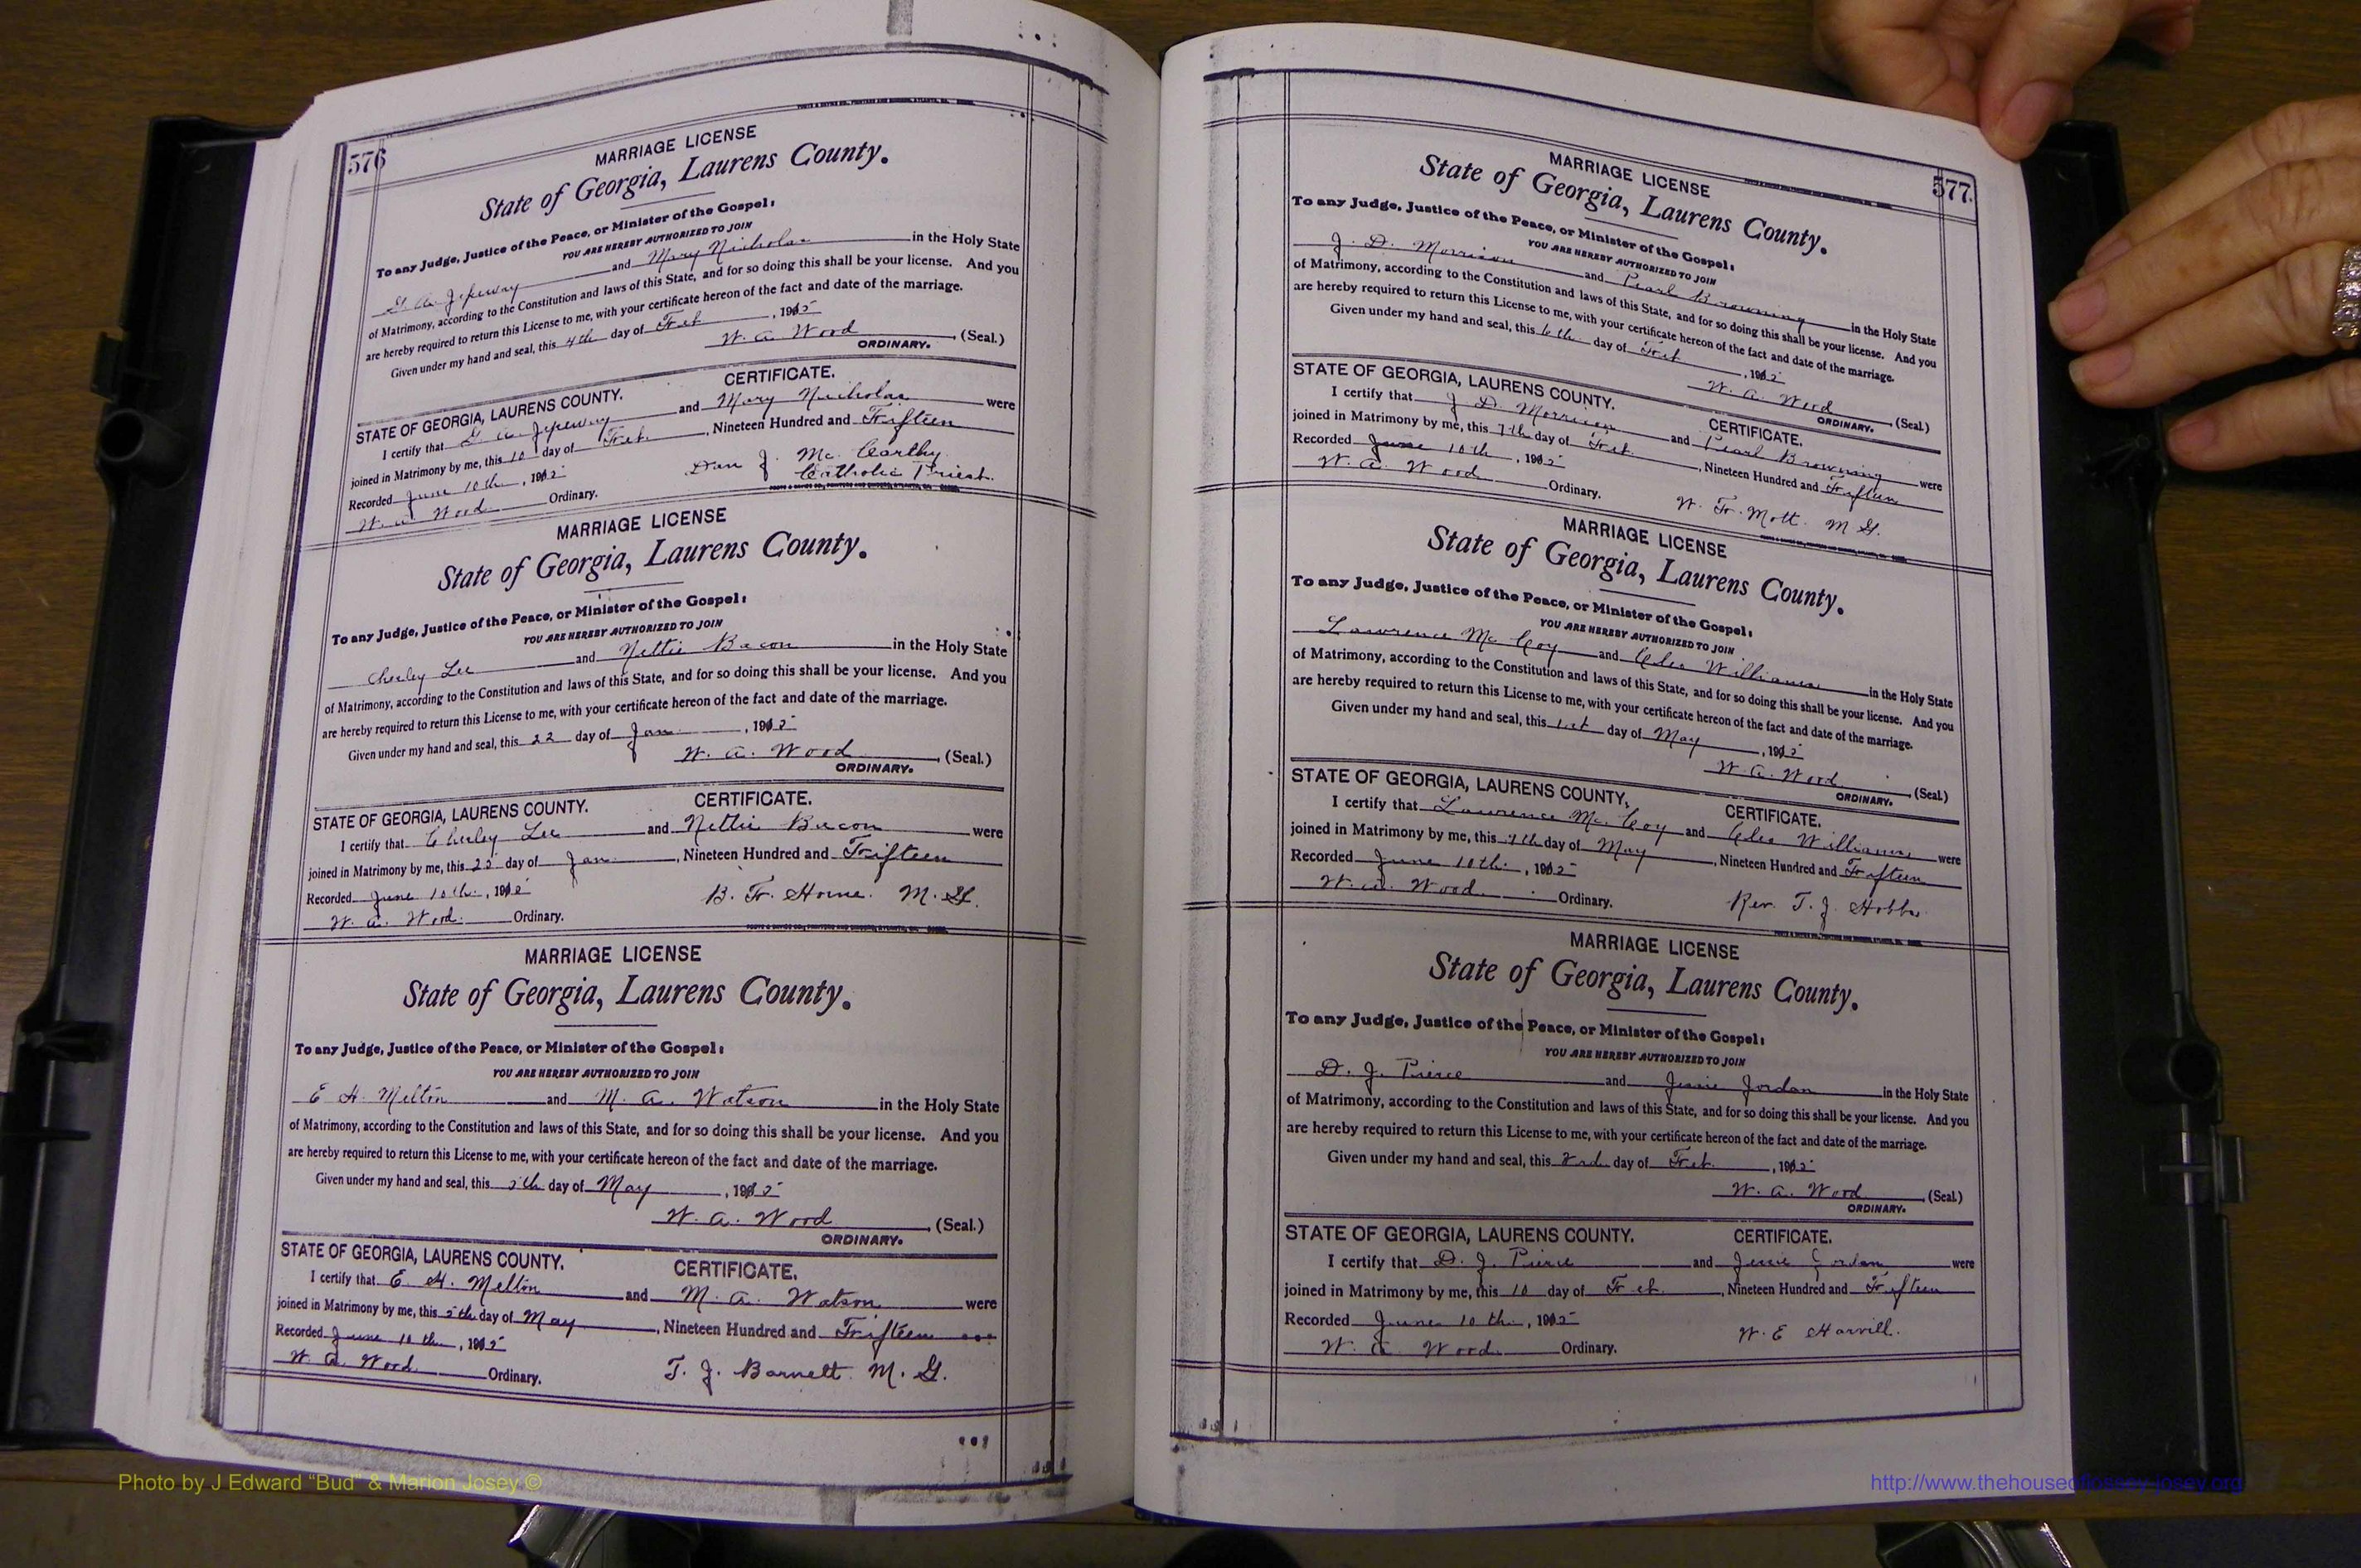 576
MARRIAGE LICENSE
State of Georgia, Laurens County.
To any Judge, Justice of the Peace, or Minister of the Gospel:
YOU ARE HEREBY AUTHORIZED TO JOIN
and Mary Nicholas in the Holy State
of Matrimony, according to the Constitution and laws of this State, and for so doing this shall be your license. And you
are hereby required to return this License to me, with your certificate hereon of the fact and date of the marriage.
Given under my hand and seal, this 4th day of Feb , 1915
W. A. Wood (Seal.)
ORDINARY.
STATE OF GEORGIA, LAURENS COUNTY. CERTIFICATE.
I certify that and Mary Nicholas were
joined in Matrimony by me, this 10 day of Feb. , Nineteen Hundred and Fifteen
Recorded June 10th , 1915 Dan J. Mc Carthy
W. A. Wood Ordinary. Catholic Priest.
MARRIAGE LICENSE
State of Georgia, Laurens County.
To any Judge, Justice of the Peace, or Minister of the Gospel:
YOU ARE HEREBY AUTHORIZED TO JOIN
Cherley Lee and Nettie Bacon in the Holy State
of Matrimony, according to the Constitution and laws of this State, and for so doing this shall be your license. And you
are hereby required to return this License to me, with your certificate hereon of the fact and date of the marriage.
Given under my hand and seal, this 22 day of Jan. , 1915
W. A. Wood (Seal.)
ORDINARY.
STATE OF GEORGIA, LAURENS COUNTY. CERTIFICATE.
I certify that Cherley Lee and Nettie Bacon were
joined in Matrimony by me, this day of Jan. , Nineteen Hundred and Fifteen
Recorded June 10th , 1915 B. F. Horne. M. G.
W. A. Wood. Ordinary.
MARRIAGE LICENSE
State of Georgia, Laurens County.
To any Judge, Justice of the Peace, or Minister of the Gospel:
YOU ARE HEREBY AUTHORIZED TO JOIN
E H. Melton and M. A. Watson in the Holy State
of Matrimony, according to the Constitution and laws of this State, and for so doing this shall be your license. And you
are hereby required to return this License to me, with your certificate hereon of the fact and date of the marriage.
Given under my hand and seal, this 5th day of May , 1915
W. A. Wood (Seal.)
ORDINARY.
STATE OF GEORGIA, LAURENS COUNTY. CERTIFICATE.
I certify that E. H. Melton and M. A. Watson were
joined in Matrimony by me, this 5th day of May , Nineteen Hundred and Fifteen
Recorded June 10th , 1915
W. A. Wood. Ordinary. T. J. Barnett. M. G.
577
MARRIAGE LICENSE
State of Georgia, Laurens County.
To any Judge, Justice of the Peace, or Minister of the Gospel:
YOU ARE HEREBY AUTHORIZED TO JOIN
J. D. Morrison and Pearl Browning in the Holy State
of Matrimony, according to the Constitution and laws of this State, and for so doing this shall be your license. And you
are hereby required to return this License to me, with your certificate hereon of the fact and date of the marriage.
Given under my hand and seal, this 6th day of Feb , 1915
W. A. Wood (Seal)
ORDINARY.
STATE OF GEORGIA, LAURENS COUNTY. CERTIFICATE.
I certify that J. D. Morrison and Pearl Browning were
joined in Matrimony by me, this 7th day of Feb. , Nineteen Hundred and Fifteen
Recorded June 10th , 1915
W. A. Wood Ordinary. W. F. Mott. M G.
MARRIAGE LICENSE
State of Georgia, Laurens County.
To any Judge, Justice of the Peace, or Minister of the Gospel:
YOU ARE HEREBY AUTHORIZED TO JOIN
Lawrence Mc Coy and Williams in the Holy State
of Matrimony, according to the Constitution and laws of this State, and for so doing this shall be your license. And you
are hereby required to return this License to me, with your certificate hereon of the fact and date of the marriage.
Given under my hand and seal, this 1st day of May , 1915
W. A. Wood (Seal)
ORDINARY.
STATE OF GEORGIA, LAURENS COUNTY. CERTIFICATE.
I certify that Lawrence Mc. Coy and Williams were
joined in Matrimony by me, this day of May , Nineteen Hundred and Fifteen
Recorded June 10th. , 1915
W. A. Wood. Ordinary. Rev. T. J. Hobbs
MARRIAGE LICENSE
State of Georgia, Laurens County.
To any Judge, Justice of the Peace, or Minister of the Gospel:
YOU ARE HEREBY AUTHORIZED TO JOIN
D. J. Pierce and Jessie Jordan in the Holy State
of Matrimony, according to the Constitution and laws of this State, and for so doing this shall be your license. And you
are hereby required to return this License to me, with your certificate hereon of the fact and date of the marriage.
Given under my hand and seal, this day of Feb. , 1915
W. A. Wood (Seal)
ORDINARY.
STATE OF GEORGIA, LAURENS COUNTY. CERTIFICATE.
I certify that D. J. Pierce and Jessie Jordan were
joined in Matrimony by me, this 10 day of Feb. , Nineteen Hundred and Fifteen
Recorded June 10th. , 1915 W. E Harvill.
W. A. Wood. Ordinary.
Photo by J Edward “Bud” & Marion Josey ©
http://www.thehouseofjossey-josey.org